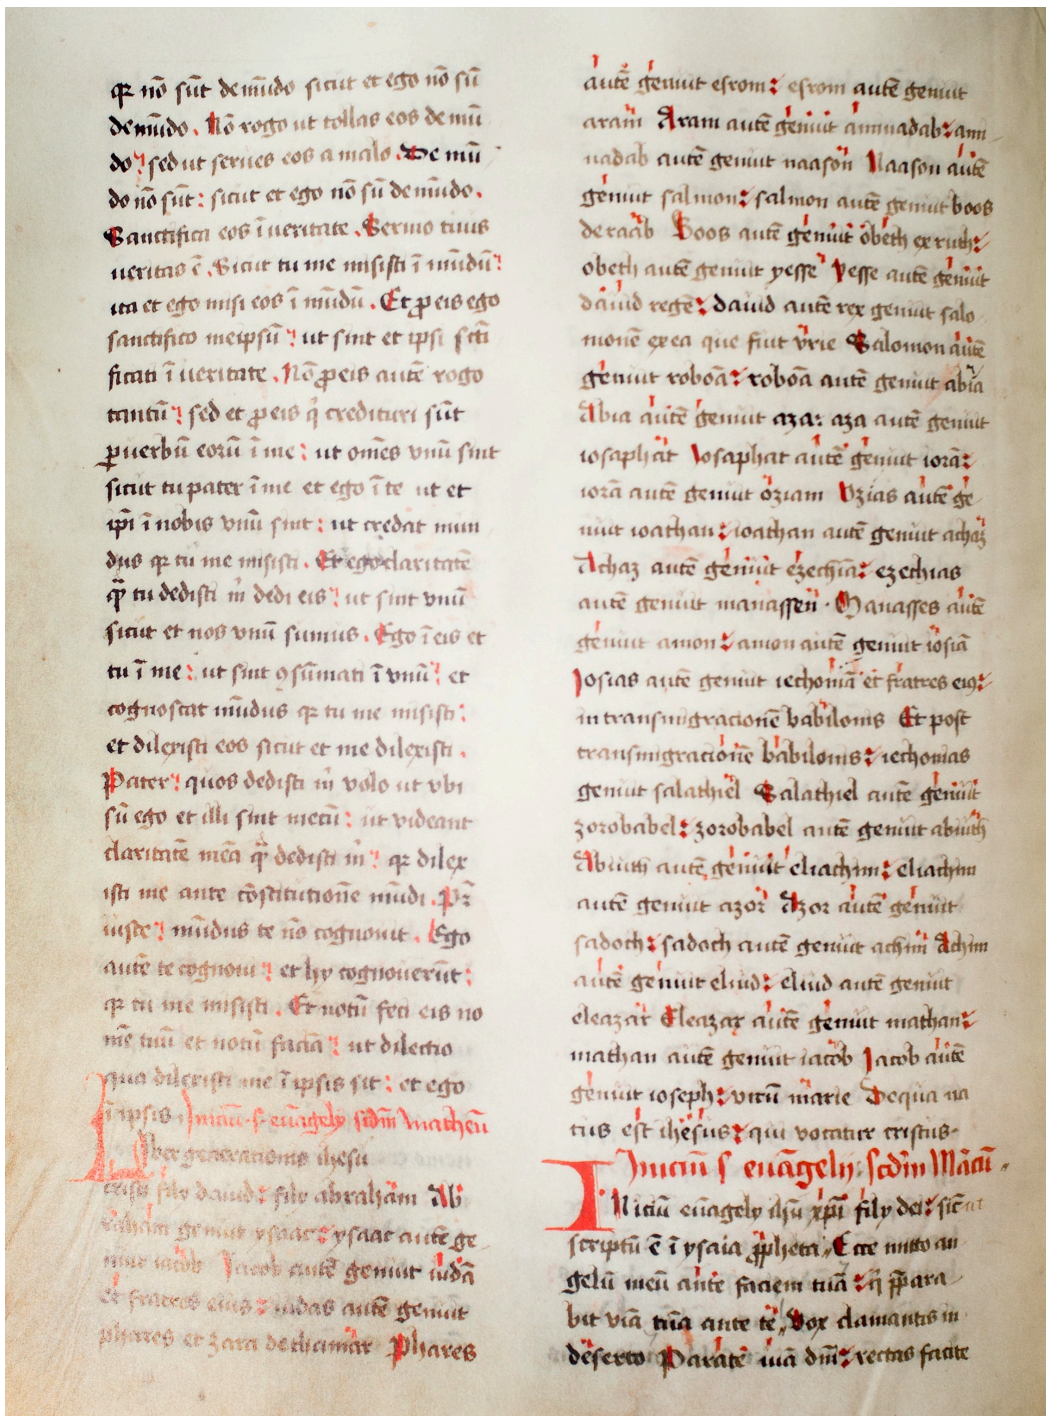 qr nō sūt de mūdo sicut et ego nō sū
de mūdo. Nō rogo ut tollas eos de mū
do: sed ut serues eos a malo. De mū
do nō sūt: sicut et ego nō sū de mūdo.
Sanctifica eos ī ueritate. Sermo tuus
ueritas ē. Sicut tu me misisti ī mūdū:
ita et ego misi eos ī mūdū. Et ꝓ eis ego
sanctifico meipsū: ut sint et ipsi scti
ficati ī ueritate. Nō ꝓ eis autē rogo
tantū: sed et ꝓ eis q̇ credituri sūt
ꝑ uerbū eorū ī me: ut omēs vnū sint
sicut tu pater ī me et ego ī te ut et
ip̄i ī nobis vnū sint: ut credat mun
dus qr tu me misisti. Et ego claritatē
q̄ tu dedisti m̄ dedi eis: ut sint vnū
sicut et nos vnū sumus. Ego ī eis et
tu ī me: ut sint ꝯsūmati ī vnū: et
cognoscat mūdus qr tu me misisti:
et dilexisti eos sicut et me dilexisti.
Pater: quos dedisti m̄ volo ut vbi
sū ego et illi sint mecū: ut videant
claritatē meā q̄ dedisti m̄: qr dilex
isti me ante cōstitutionē mūdi. Pr̄
iuste: mūdus te nō cognouit. Ego
autē te cognoui: et hy cognouerūt:
qr tu me misisti. Et notū feci eis no
mē tuū et notū faciā: ut dilectio
qua dilexisti me ī ipsis sit: et ego
ī ipsis Iniciū s euāgely scdm̄ matheū
Liber generationis ihesu
cristi fily dauid: fily abrahām Ab
raham genuit ysaac: ysaac autē ge
nuit iacob Iacob autē genuit iudā
et fratres eius: iudas autē genuit
phares et zara de thamar Phares
autē genuit esrom: esrom autē genuit
aram Aram autē genuit aminadab: ami
nadab autē genuit naason Naason autē
genuit salmon: salmon autē genuit boos
de raab Boos autē genuit obeth ex ruth:
obeth autē genuit yesse Yesse autē genuit
dauid regē: dauid autē rex genuit salo
monē ex ea que fuit vrie Salomon autē
genuit roboā: roboā autē genuit abia
Abia autē genuit aza: aza autē genuit
iosaphat Iosaphat autē genuit iorā:
iorā autē genuit oziam Ozias autē ge
nuit ioathan: ioathan autē genuit achaz
Achaz autē genuit ezechiā: ezechias
autē genuit manassen. Manasses autē
genuit amon: amon autē genuit iosiā
Iosias autē genuit iechoniā et fratres eiꝰ:
in transmigracionē babilonis Et post
transmigracionē babilonis: iechonias
genuit salathiel Salathiel autē genuit
zorobabel: zorobabel autē genuit abiuth
Abiuth autē genuit eliachim: eliachim
autē genuit azor Azor autē genuit
sadoch: sadoch autē genuit achim Achim
autē genuit eliud: eliud autē genuit
eleazar Eleazar autē genuit mathan:
mathan autē genuit iacob Iacob autē
genuit ioseph: virū marie De qua na
tus est ihesus: qui vocatur cristus.
Iniciū s euāgely: scdm̄ Marcū
INiciū euāgely ihū xp̄i fily dei: sic̄ ut
scriptū ē ī ysaia ꝓpheta: Ecce mitto an
gelū meū ante faciem tuā: q̇ p̄para
bit viā tuā ante te, Vox clamantis in
deserto Parate viā dm̄: rectas facite